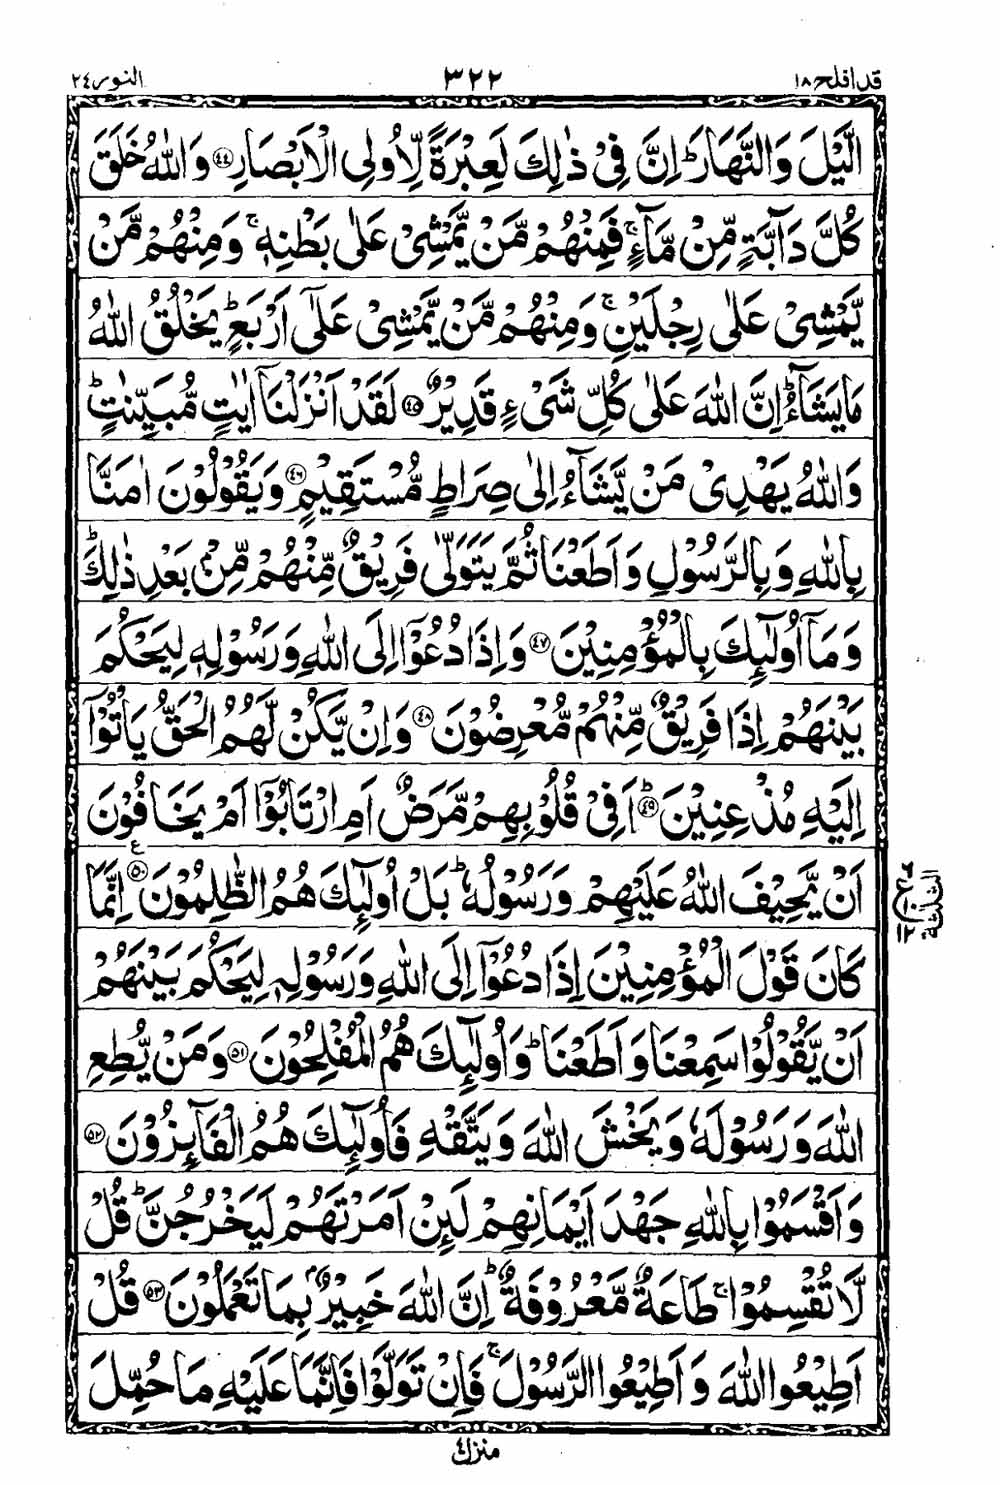 قد افلح ١٨ ٣٢٢ النور ٢٤
الَّيْلَ وَالنَّهَارَ ؕ اِنَّ فِىْ ذٰلِكَ لَعِبْرَةً لِّاُولِى الْاَبْصَارِ ﴿٤٤﴾ وَاللّٰهُ خَلَقَ
كُلَّ دَآبَّةٍ مِّنْ مَّآءٍ ۚ فَمِنْهُمْ مَّنْ يَّمْشِىْ عَلٰى بَطْنِهٖ ۚ وَمِنْهُمْ مَّنْ
يَّمْشِىْ عَلٰى رِجْلَيْنِ ۚ وَمِنْهُمْ مَّنْ يَّمْشِىْ عَلٰٓى اَرْبَعٍ ؕ يَخْلُقُ اللّٰهُ
مَا يَشَآءُ ؕ اِنَّ اللّٰهَ عَلٰى كُلِّ شَىْءٍ قَدِيْرٌ ﴿٤٥﴾ لَقَدْ اَنْزَلْنَاۤ اٰيٰتٍ مُّبَيِّنٰتٍ ؕ
وَاللّٰهُ يَهْدِىْ مَنْ يَّشَآءُ اِلٰى صِرَاطٍ مُّسْتَقِيْمٍ ﴿٤٦﴾ وَيَقُوْلُوْنَ اٰمَنَّا
بِاللّٰهِ وَبِالرَّسُوْلِ وَاَطَعْنَا ثُمَّ يَتَوَلّٰى فَرِيْقٌ مِّنْهُمْ مِّنْۢ بَعْدِ ذٰلِكَ ؕ
وَمَاۤ اُولٰٓئِكَ بِالْمُؤْمِنِيْنَ ﴿٤٧﴾ وَاِذَا دُعُوْۤا اِلَى اللّٰهِ وَرَسُوْلِهٖ لِيَحْكُمَ
بَيْنَهُمْ اِذَا فَرِيْقٌ مِّنْهُمْ مُّعْرِضُوْنَ ﴿٤٨﴾ وَاِنْ يَّكُنْ لَّهُمُ الْحَقُّ يَاْتُوْۤا
اِلَيْهِ مُذْعِنِيْنَ ؕ ﴿٤٩﴾ اَفِىْ قُلُوْبِهِمْ مَّرَضٌ اَمِ ارْتَابُوْۤا اَمْ يَخَافُوْنَ
اَنْ يَّحِيْفَ اللّٰهُ عَلَيْهِمْ وَرَسُوْلُهٗ ؕ بَلْ اُولٰٓئِكَ هُمُ الظّٰلِمُوْنَ ﴿٥٠﴾ ع اِنَّمَا
كَانَ قَوْلَ الْمُؤْمِنِيْنَ اِذَا دُعُوْۤا اِلَى اللّٰهِ وَرَسُوْلِهٖ لِيَحْكُمَ بَيْنَهُمْ
اَنْ يَّقُوْلُوْا سَمِعْنَا وَاَطَعْنَا ؕ وَاُولٰٓئِكَ هُمُ الْمُفْلِحُوْنَ ﴿٥١﴾ وَمَنْ يُّطِعِ
اللّٰهَ وَرَسُوْلَهٗ وَيَخْشَ اللّٰهَ وَيَتَّقْهِ فَاُولٰٓئِكَ هُمُ الْفَآئِزُوْنَ ﴿٥٢﴾
وَاَقْسَمُوْا بِاللّٰهِ جَهْدَ اَيْمَانِهِمْ لَئِنْ اَمَرْتَهُمْ لَيَخْرُجُنَّ ؕ قُلْ
لَّا تُقْسِمُوْا ۚ طَاعَةٌ مَّعْرُوْفَةٌ ؕ اِنَّ اللّٰهَ خَبِيْرٌۢ بِمَا تَعْمَلُوْنَ ﴿٥٣﴾ قُلْ
اَطِيْعُوا اللّٰهَ وَاَطِيْعُوا الرَّسُوْلَ ۚ فَاِنْ تَوَلَّوْا فَاِنَّمَا عَلَيْهِ مَا حُمِّلَ
الثلثة
ع ١٢
منزل ٤